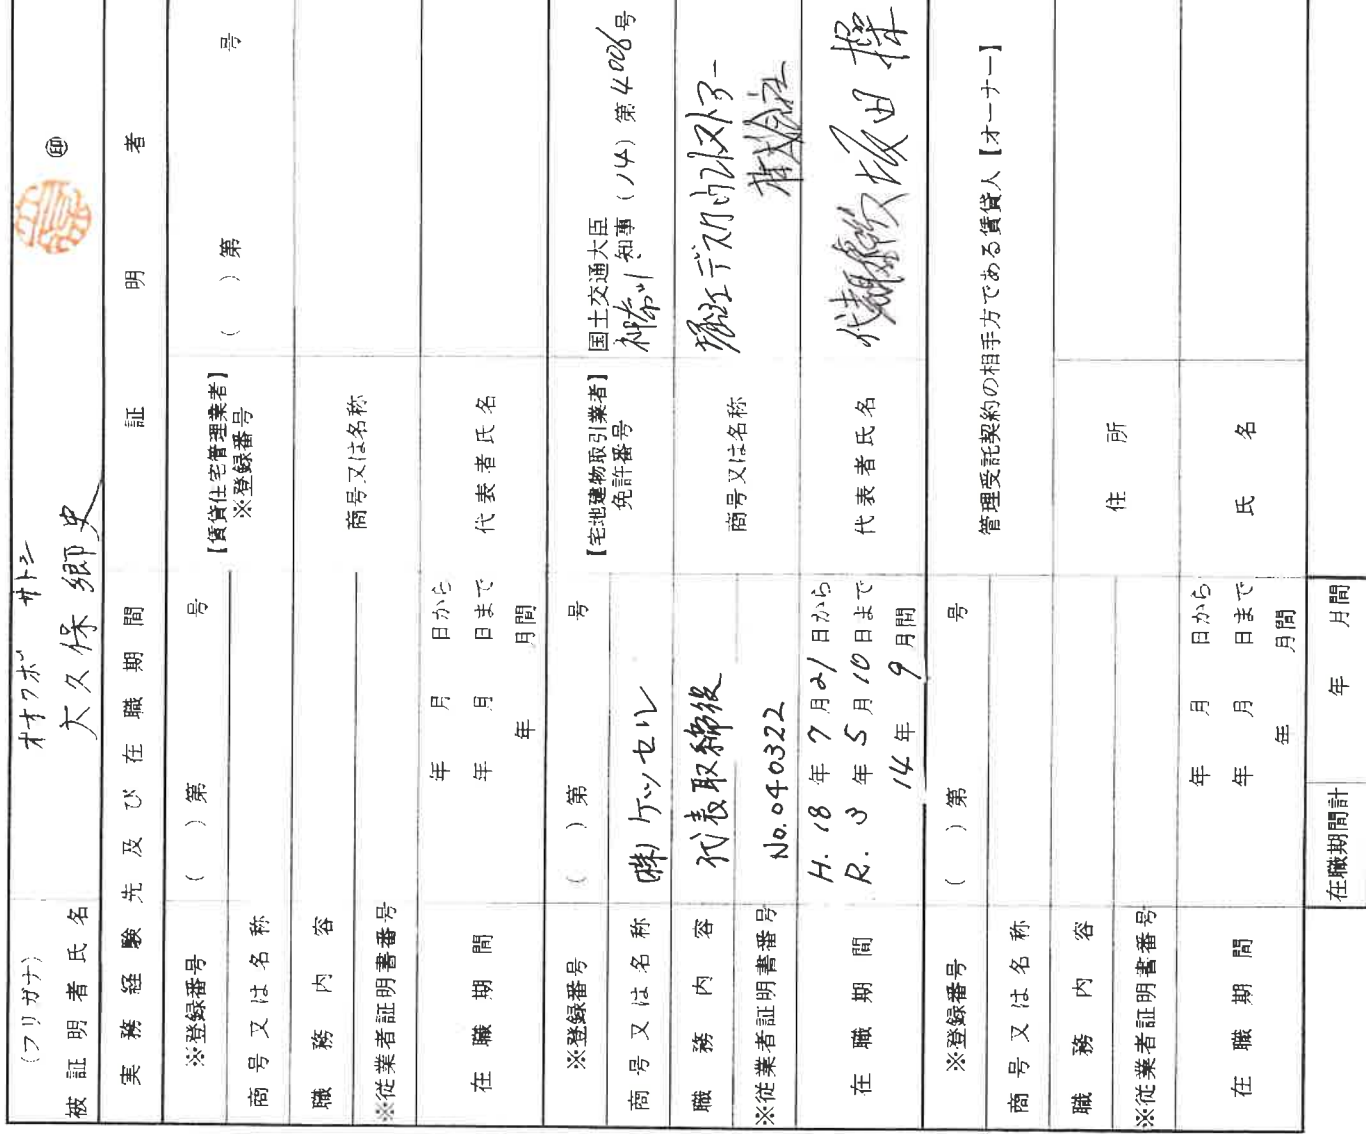 (フリガナ) オオクボ サトシ
被証明者氏名 大久保 郷史 ㊞
実務経験先及び在職期間 証明者
※登録番号 ( )第 号
【賃貸住宅管理業者】
※登録番号 ( )第 号
商号又は名称
商号又は名称
職務内容
※従業者証明書番号
在職期間
年 月 日から
年 月 日まで
年 月間
代表者氏名
※登録番号 ( )第 号
【宅地建物取引業者】
免許番号
国土交通大臣
神奈川 知事 (14) 第4006号
商号又は名称 (株)ケッセル
職務内容 代表取締役
※従業者証明書番号 No.040322
商号又は名称
株式会社
在職期間
H.18年7月21日から
R.3年5月10日まで
14年9月間
代表者氏名 代表取締役 坂田
※登録番号 ( )第 号
管理受託契約の相手方である賃貸人【オーナー】
商号又は名称
職務内容
※従業者証明書番号
住所
在職期間
年 月 日から
年 月 日まで
年 月間
氏名
在職期間計 年 月間